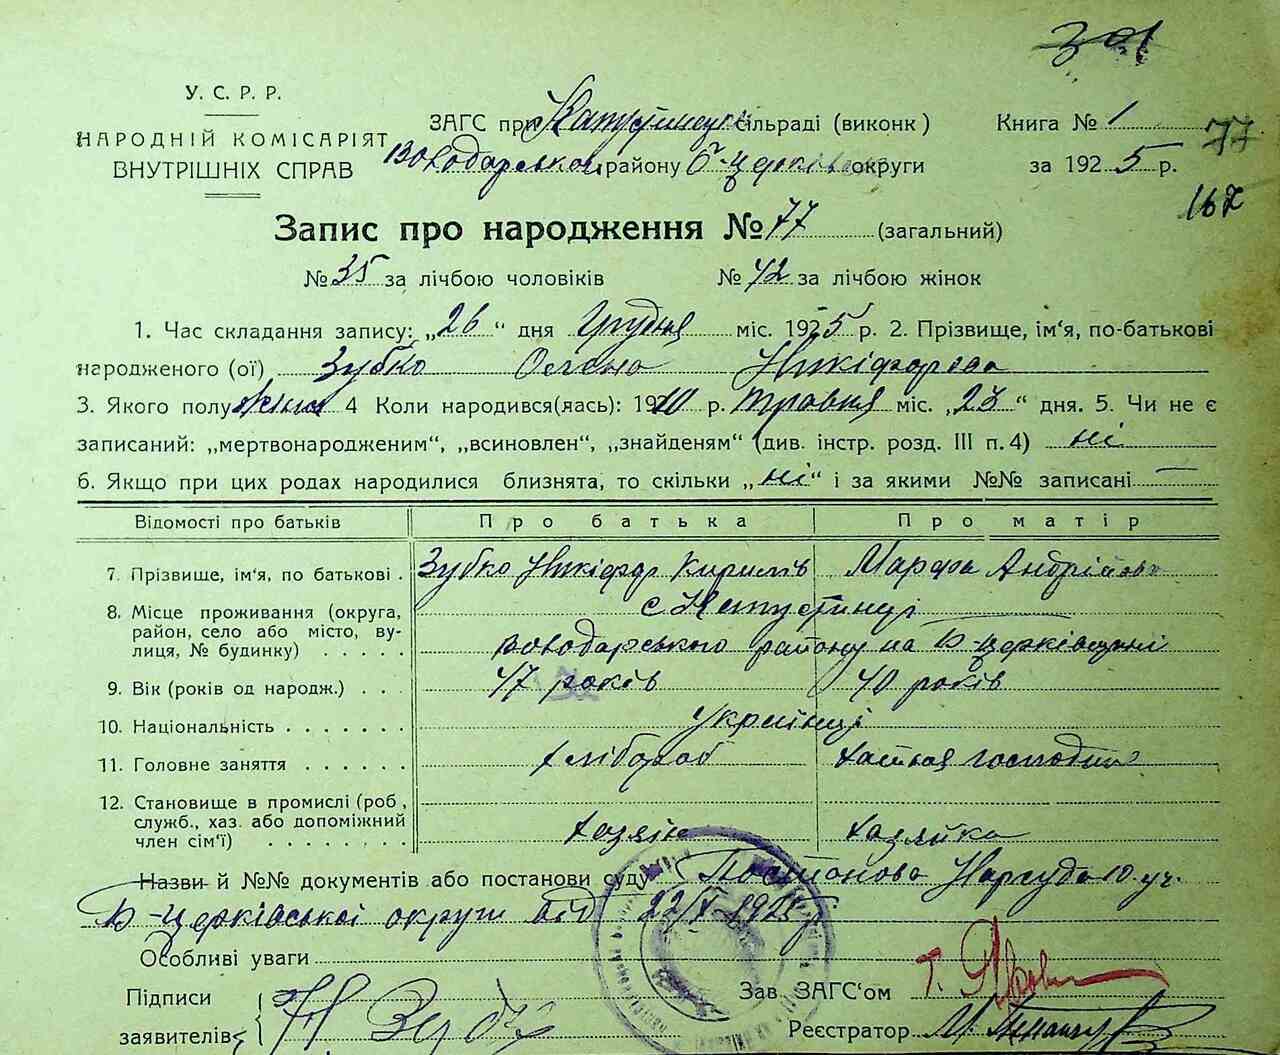 301
У. С. Р. Р.
НАРОДНІЙ КОМІСАРІЯТ
ВНУТРІШНІХ СПРАВ
ЗАГС при Капустинській сільраді (виконк)
Книга № 1
77
Володарського району Б-Церків округи
за 1925 р.
167
Запис про народження № 77 (загальний)
№ 35 за лічбою чоловіків № 42 за лічбою жінок
1. Час складання запису: „26“ дня Грудня міс. 1925 р. 2. Прізвище, ім'я, по-батькові
народженого (ої) Зубко Олена Никіфорова
3. Якого полу жіноч 4 Коли народився(лась): 1910 р. травня міс. „23“ дня. 5. Чи не є
записаний: „мертвонародженим“, „всиновлен“, „знайденям“ (див. інстр. розд. III п. 4) ні
6. Якщо при цих родах народилися близнята, то скільки „ні“ і за якими №№ записані —
Відомості про батьків Про батька Про матір
7. Прізвище, ім'я, по батькові . Зубко Никіфор Кирилів Марфа Андрійова
8. Місце проживання (округа, с Капустинці
район, село або місто, ву-
лиця, № будинку) . . . . . Володарського району на Б-Церківщині
9. Вік (років од народж.) . . . 47 років 40 років
10. Національність . . . . . . . Українці
11. Головне заняття . . . . . . хлібороб хатная господин
12. Становище в промислі (роб,
служб., хаз. або допоміжний
член сім'ї) . . . . . . . . хазяін хазяйка
Назви й №№ документів або постанови суду Постанова Нарсуда 10. уч.
Б-Церківської округи від 22/X-1925 р
Особливі уваги
Підписи Зав. ЗАГС'ом
заявителів Н Зубко Реєстратор